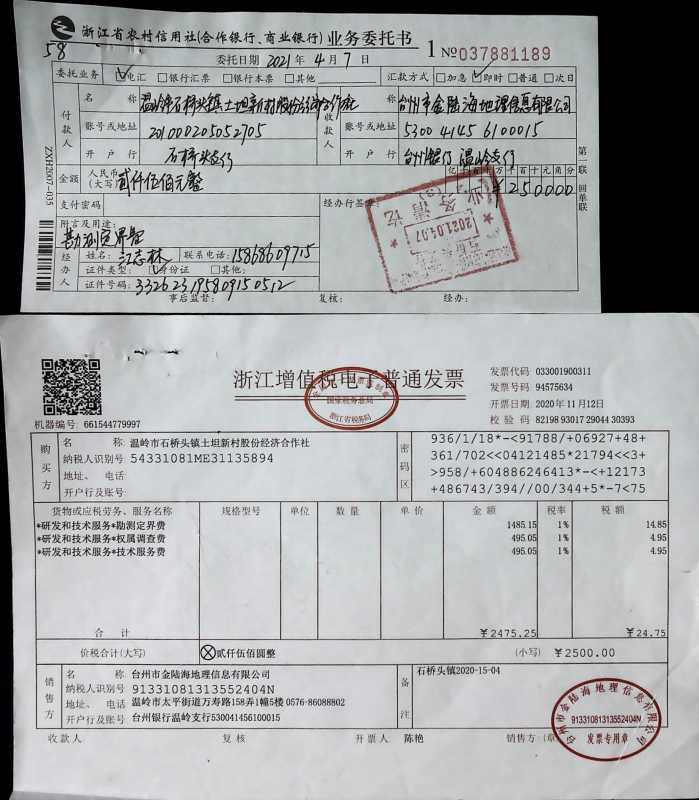 浙江省农村信用社(合作银行、商业银行)业务委托书
1 №037881189
58
委托日期 2021年4月7日
委托业务 电汇 银行汇票 银行本票 其他 汇款方式 加急 即时 普通 次日
付款人
名称 温岭市石桥头镇土坦新村股份经济合作社
账号或地址 201000205052905
开户行 石桥头支行
收款人
名称 台州市金陆海地理信息有限公司
账号或地址 530041456100015
开户行 台州银行温岭支行
金额 人民币(大写) 贰仟伍佰元整
亿千百十万千百十元角分
¥250000
支付密码
经办行签章
附言及用途:
勘测定界费
经办人
姓名: 江志林 联系电话: 15868609715
证件类型: 身份证 其他:
证件号码: 332623195809150512
事后监督: 复核: 经办:
ZXH2007-035
第一联 回单联
2021.04.07
业务清讫
浙江增值税电子普通发票
国家税务总局
浙江省税务局
发票代码 033001900311
发票号码 94575634
开票日期 2020年11月12日
校验码 82198 93017 29044 30393
机器编号: 661544779997
购买方
名称: 温岭市石桥头镇土坦新村股份经济合作社
纳税人识别号: 54331081ME31135894
地址、电话:
开户行及账号:
密码区
936/1/18*-<91788/+06927+48+
361/702<<04121485*21794<<3+
>958/+604886246413*-<+12173
+486743/394//00/344+5*-7<75
货物或应税劳务、服务名称 规格型号 单位 数量 单价 金额 税率 税额
*研发和技术服务*勘测定界费 1485.15 1% 14.85
*研发和技术服务*权属调查费 495.05 1% 4.95
*研发和技术服务*技术服务费 495.05 1% 4.95
合计 ¥2475.25 ¥24.75
价税合计(大写) ⊗贰仟伍佰圆整 (小写) ¥2500.00
销售方
名称: 台州市金陆海地理信息有限公司
纳税人识别号: 91331081313552404N
地址、电话: 温岭市太平街道万寿路158弄1幢5楼 0576-86088802
开户行及账号: 台州银行温岭支行530041456100015
备注
石桥头镇2020-15-04
收款人: 复核: 开票人: 陈艳 销售方:(章)
台州市金陆海地理信息有限公司
91331081313552404N
发票专用章